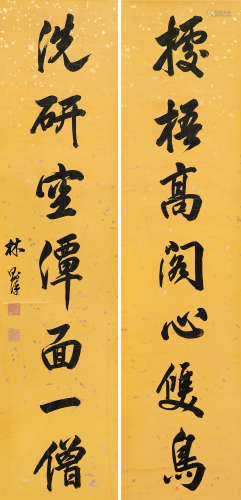 據梧高閣心雙鳥
洗研空潭面一僧
林則徐